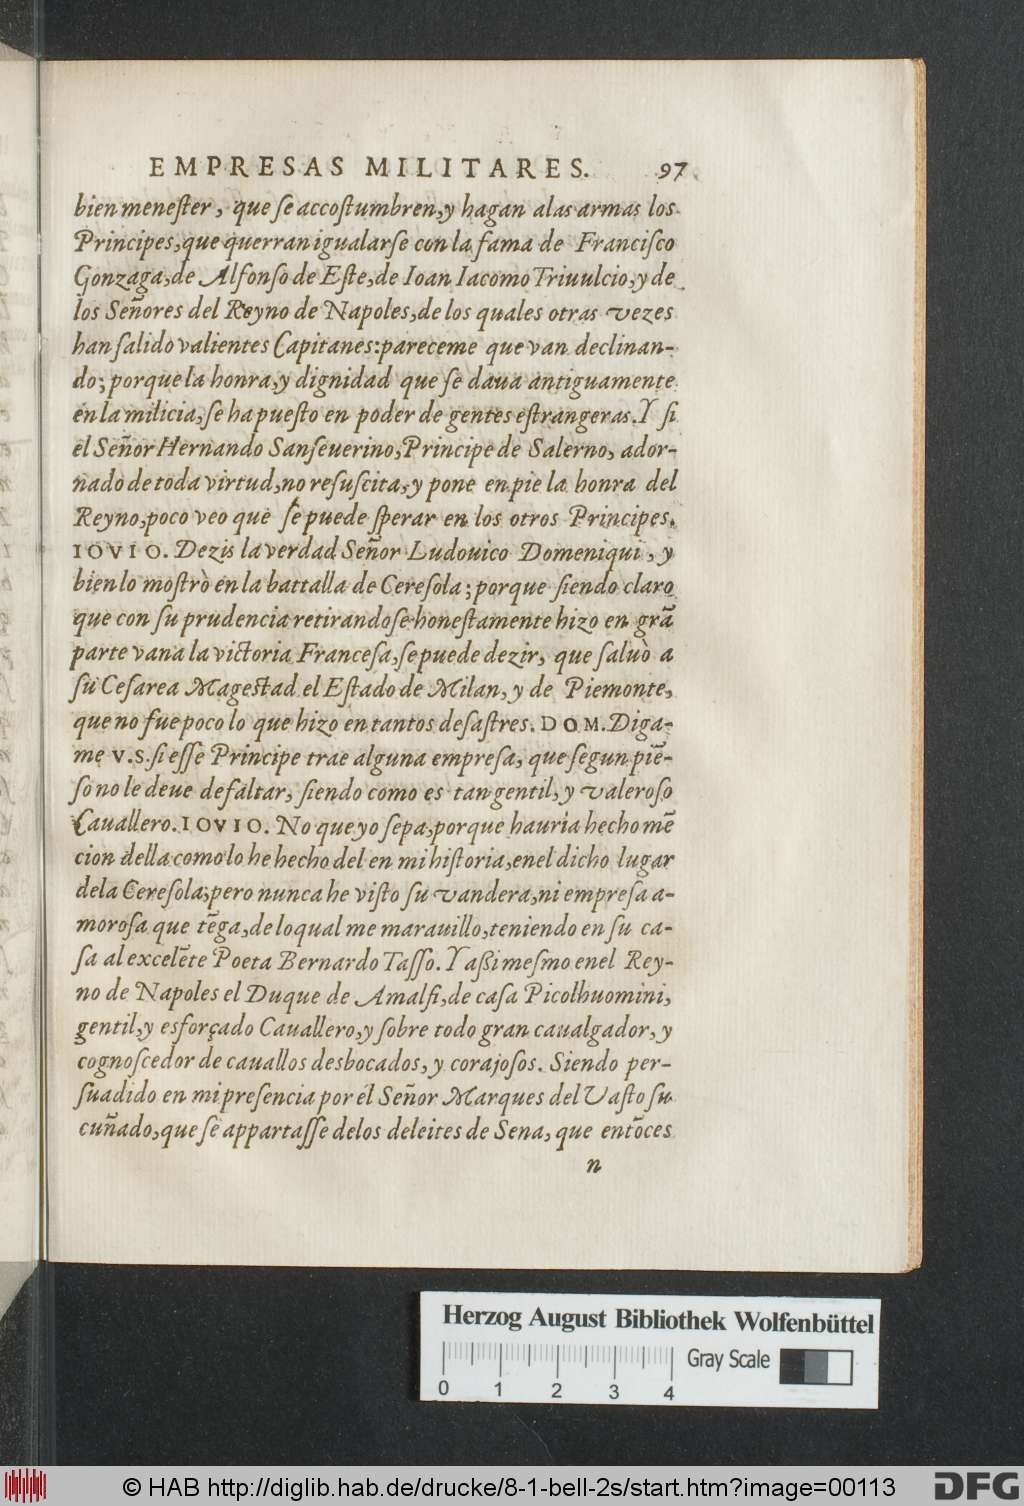 EMPRESAS MILITARES. 97
bien meneſter, que ſe accoſtumbren, y hagan alas armas los
Principes, que querran igualarſe con la fama de Franciſco
Gonzaga, de Alfonſo de Eſte, de Ioan Iacomo Triuulcio, y de
los Señores del Reyno de Napoles, de los quales otras vezes
han ſalido valientes Capitanes: pareceme que van declinan-
do; porque la honra, y dignidad que ſe daua antiguamente
en la milicia, ſe ha pueſto en poder de gentes eſtrangeras. Y ſi
el Señor Hernando Sanſeuerino, Principe de Salerno, ador-
nado de toda virtud, no reſuſcita, y pone en pie la honra del
Reyno, poco veo que ſe puede ſperar en los otros Principes.
IOVIO. Dezis la verdad Señor Ludouico Domeniqui, y
bien lo moſtrò en la battalla de Cereſola; porque ſiendo claro
que con ſu prudencia retirandoſe honeſtamente hizo en grã
parte vana la victoria Franceſa, ſe puede dezir, que ſaluò a
ſu Ceſarea Mageſtad el Eſtado de Milan, y de Piemonte,
que no fue poco lo que hizo en tantos deſaſtres. DOM. Diga-
me V.S. ſi eſſe Principe trae alguna empreſa, que ſegun piẽ-
ſo no le deue de faltar, ſiendo como es tan gentil, y valeroſo
Cauallero. IOVIO. No que yo ſepa, porque hauria hecho mẽ
cion della como lo he hecho del en mi hiſtoria, enel dicho lugar
dela Cereſola; pero nunca he viſto ſu vandera, ni empreſa a-
moroſa que tẽga, de lo qual me marauillo, teniendo en ſu ca-
ſa al excelẽte Poeta Bernardo Taſſo. Y aßi meſmo enel Rey-
no de Napoles el Duque de Amalfi, de caſa Picolhuomini,
gentil, y esforçado Cauallero, y ſobre todo gran caualgador, y
cognoſcedor de cauallos desbocados, y corajoſos. Siendo per-
ſuadido en mi preſencia por el Señor Marques del Vaſto ſu
cuñado, que ſe appartaſſe delos deleites de Sena, que entõces
n
Herzog August Bibliothek Wolfenbüttel
Gray Scale
0 1 2 3 4
© HAB http://diglib.hab.de/drucke/8-1-bell-2s/start.htm?image=00113
DFG